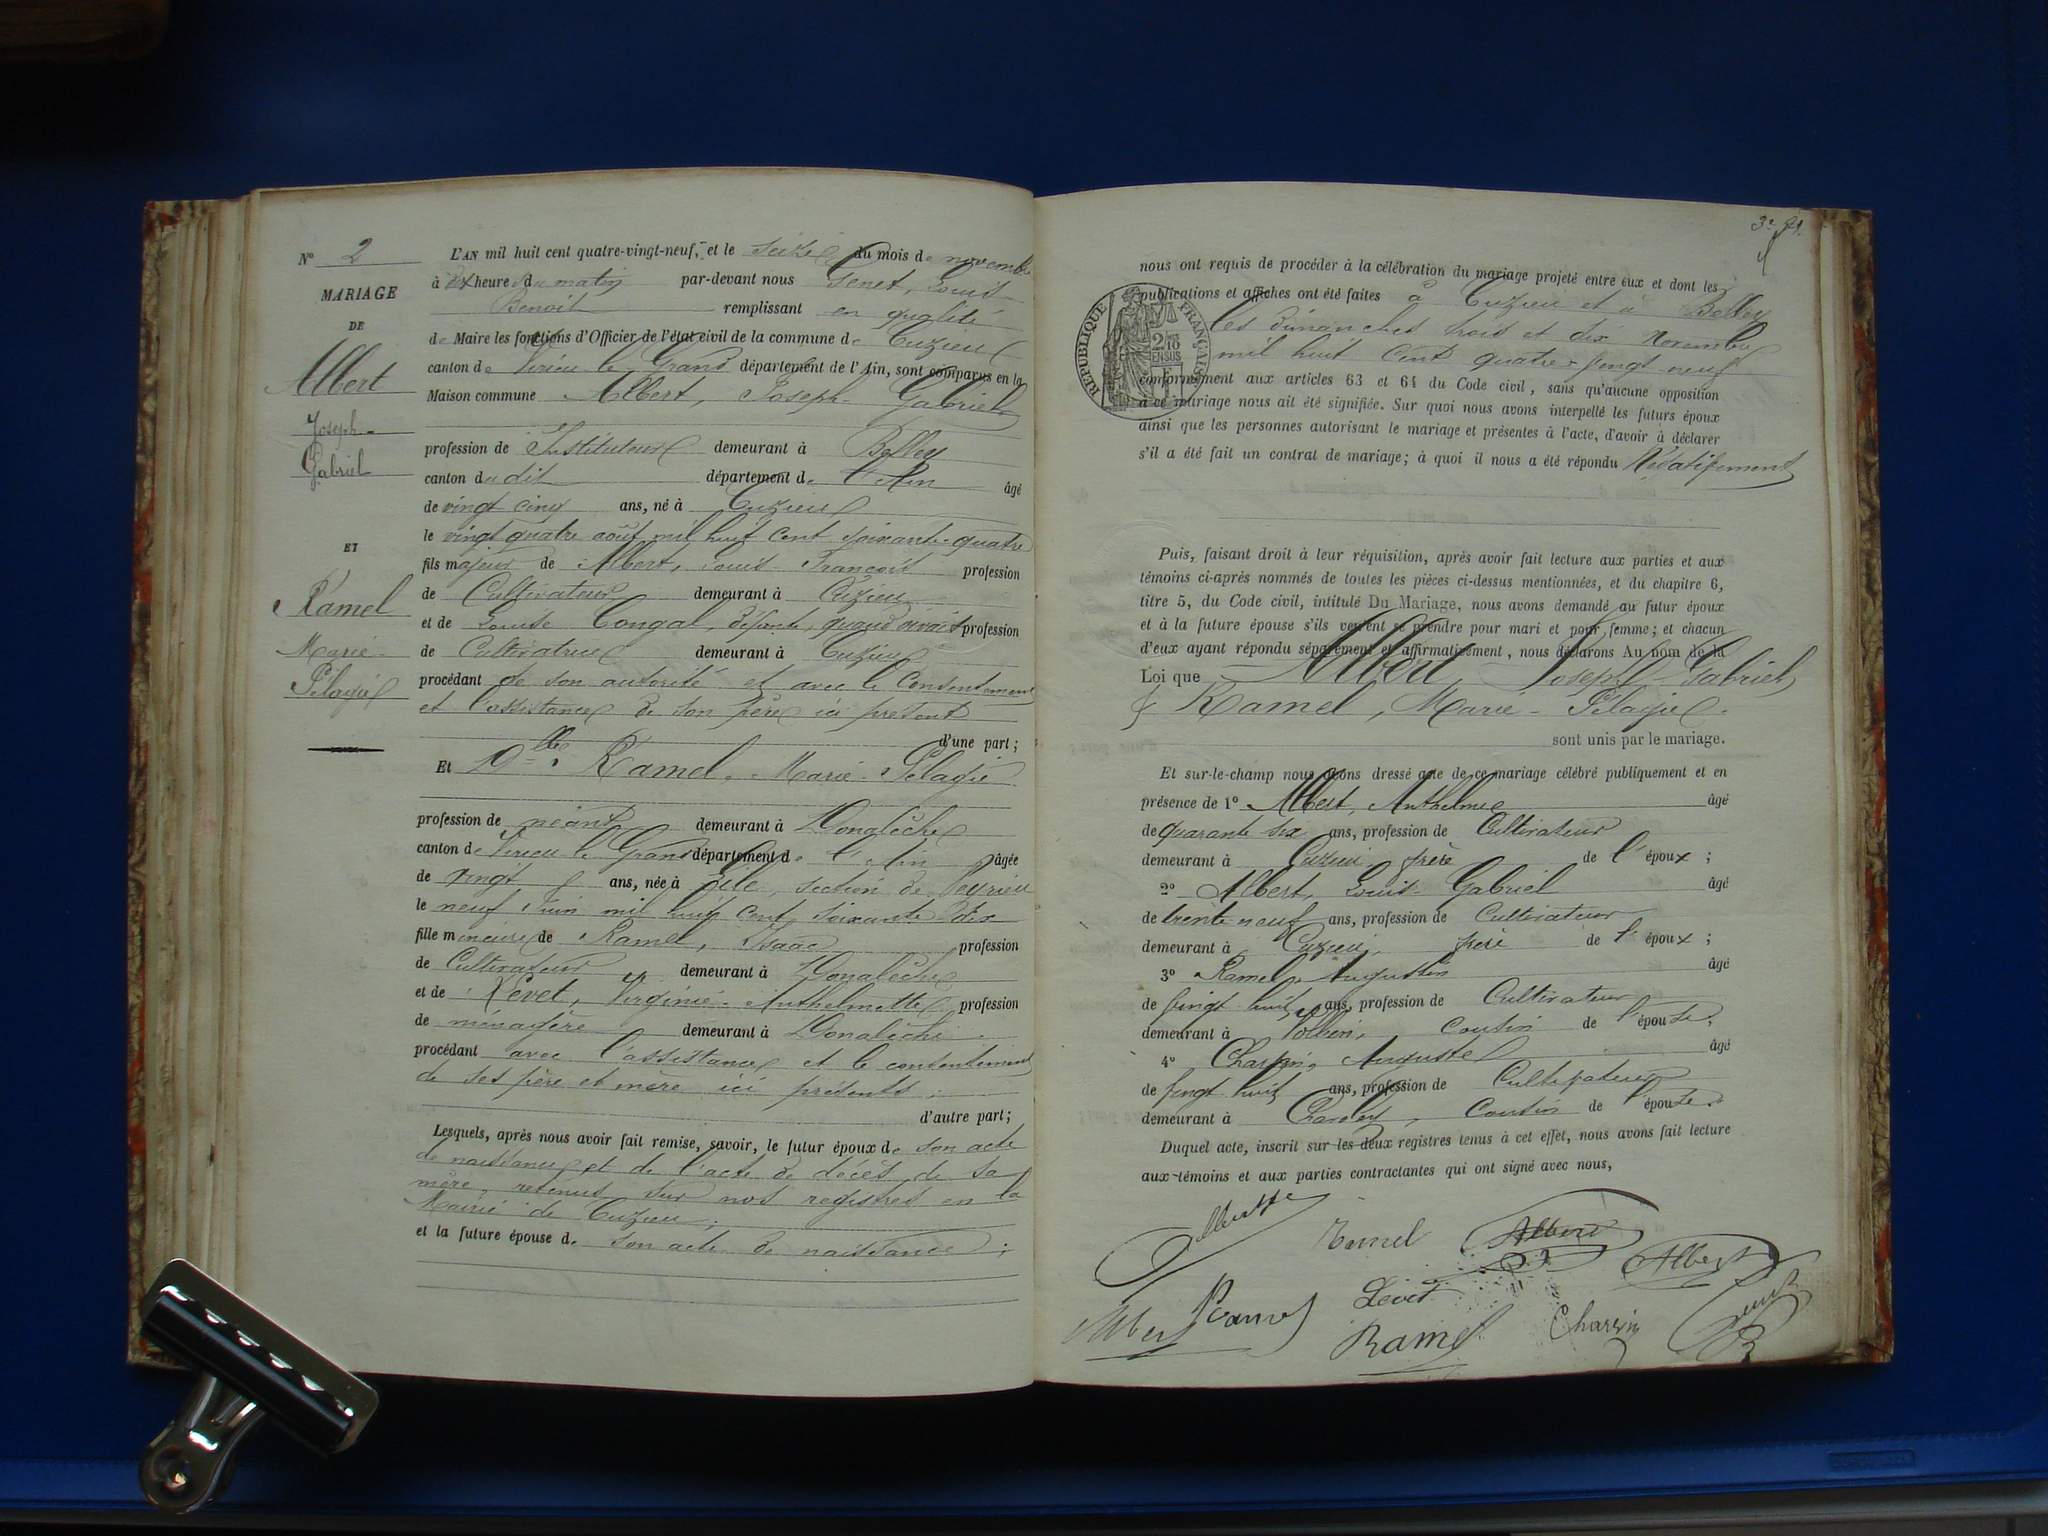 Nº 2
MARIAGE
DE
Albert
Joseph-
Gabriel
ET
Ramel
Marie-
Pélagie
L'AN mil huit cent quatre-vingt-neuf, et le seize du mois de novembre
à dix heures du matin par-devant nous Genet, Louis
Benoit remplissant en qualité
de Maire les fonctions d'Officier de l'état civil de la commune de Cuzieu
canton de Virieu le Grand département de l'Ain, sont comparus en la
Maison commune Albert, Joseph-Gabriel
profession de Instituteur demeurant à Belley
canton du dit département de l'Ain âgé
de vingt cinq ans, né à Cuzieu
le vingt quatre août mil huit cent soixante-quatre
fils majeur de Albert, Louis-François profession
de Cultivateur demeurant à Cuzieu
et de Louise Congal, défunte, quand vivait profession
de Cultivatrice demeurant à Cuzieu
procédant de son autorité et avec le consentement
et l'assistance de son père ici présent
d'une part;
Et Dlle Ramel, Marie-Pélagie
profession de néant demeurant à
canton de Virieu le Grand département de l'Ain âgée
de vingt ans, née à section de Peyrieu
le neuf Juin mil huit cent soixante-dix
fille mineure de Ramel, Isaac profession
de Cultivateur demeurant à
et de Levet, Virginie-Anthelmette profession
de ménagère demeurant à
procédant avec l'assistance et le consentement
de ses père et mère ici présents;
d'autre part;
Lesquels, après nous avoir fait remise, savoir, le futur époux de son acte
de naissance et de l'acte de décès de sa
mère, retenus sur nos registres en la
Mairie de Cuzieu;
et la future épouse de son acte de naissance;
nous ont requis de procéder à la célébration du mariage projeté entre eux et dont les
publications et affiches ont été faites à Cuzieu et à Belley
les dimanches trois et dix Novembre
mil huit cent quatre-vingt-neuf
RÉPUBLIQUE FRANÇAISE
conformément aux articles 63 et 64 du Code civil, sans qu'aucune opposition
à ce mariage nous ait été signifiée. Sur quoi nous avons interpellé les futurs époux
ainsi que les personnes autorisant le mariage et présentes à l'acte, d'avoir à déclarer
s'il a été fait un contrat de mariage; à quoi il nous a été répondu Négativement
Puis, faisant droit à leur réquisition, après avoir fait lecture aux parties et aux
témoins ci-après nommés de toutes les pièces ci-dessus mentionnées, et du chapitre 6,
titre 5, du Code civil, intitulé Du Mariage, nous avons demandé au futur époux
et à la future épouse s'ils veulent se prendre pour mari et pour femme; et chacun
d'eux ayant répondu séparément et affirmativement, nous déclarons Au nom de la
Loi que Albert, Joseph-Gabriel
& Ramel, Marie-Pélagie.
sont unis par le mariage.
Et sur-le-champ nous avons dressé acte de ce mariage célébré publiquement et en
présence de 1º Albert, Anthelme âgé
de quarante six ans, profession de Cultivateur
demeurant à Cuzieu, frère de l'époux;
2º Albert, Louis-Gabriel âgé
de trente neuf ans, profession de Cultivateur
demeurant à Cuzieu, frère de l'époux;
3º Ramel, Augustin âgé
de vingt huit ans, profession de Cultivateur
demeurant à cousin de l'épouse;
4º Charvin, Auguste âgé
de vingt huit ans, profession de Cultivateur
demeurant à cousin de l'épouse.
Duquel acte, inscrit sur les deux registres tenus à cet effet, nous avons fait lecture
aux témoins et aux parties contractantes qui ont signé avec nous,
Ramel Albert
Albert
Levet
Albert
Ramel Charvin